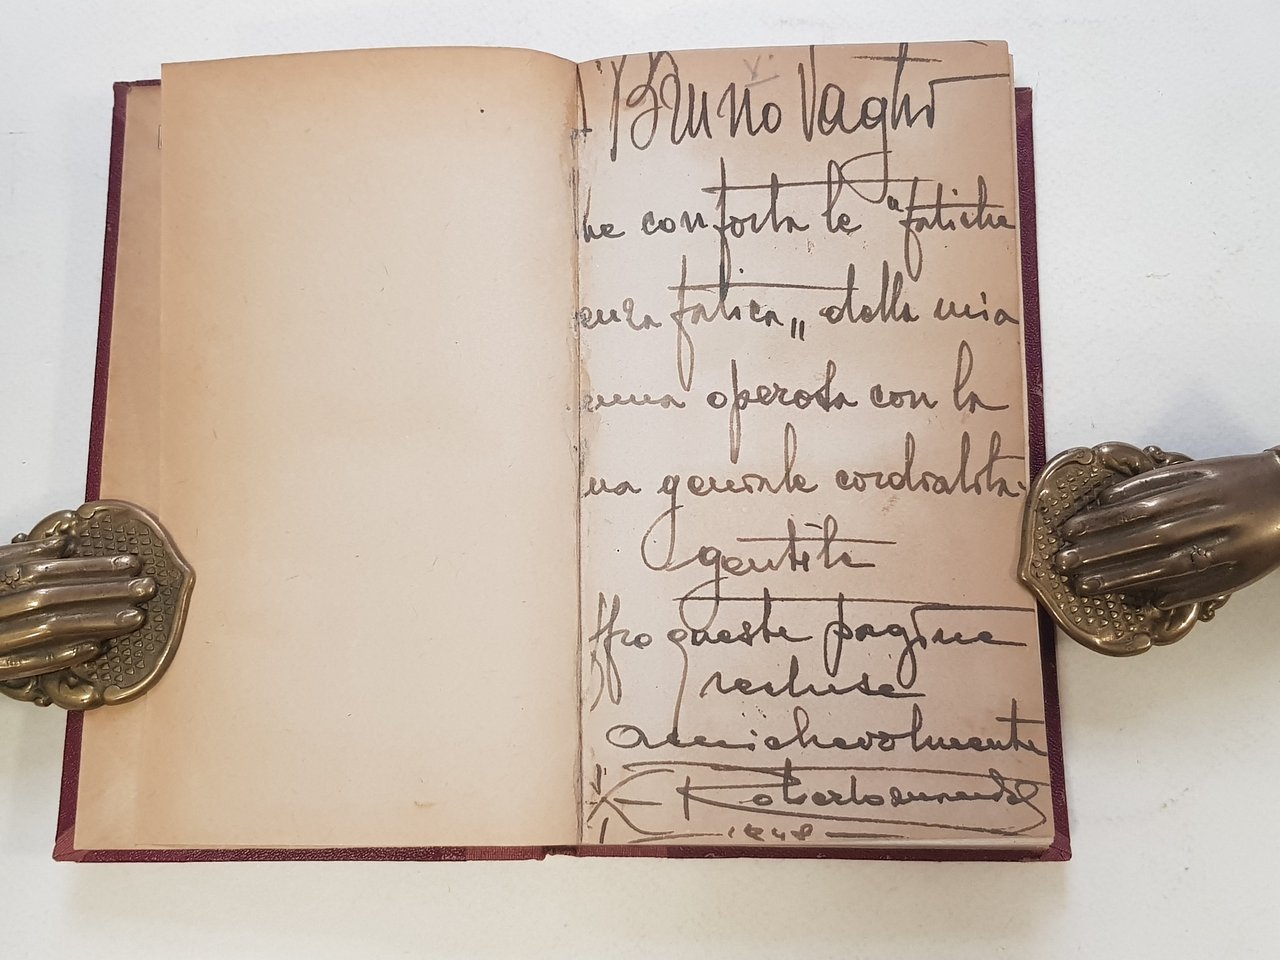 A Bruno Vaghi
he conforta le "fatiche
enza fatica„ della mia
enna operosa con la
ua geniale cordialità
gentile
ffro queste pagine
recluse
amichevolmente
Roberto
1948